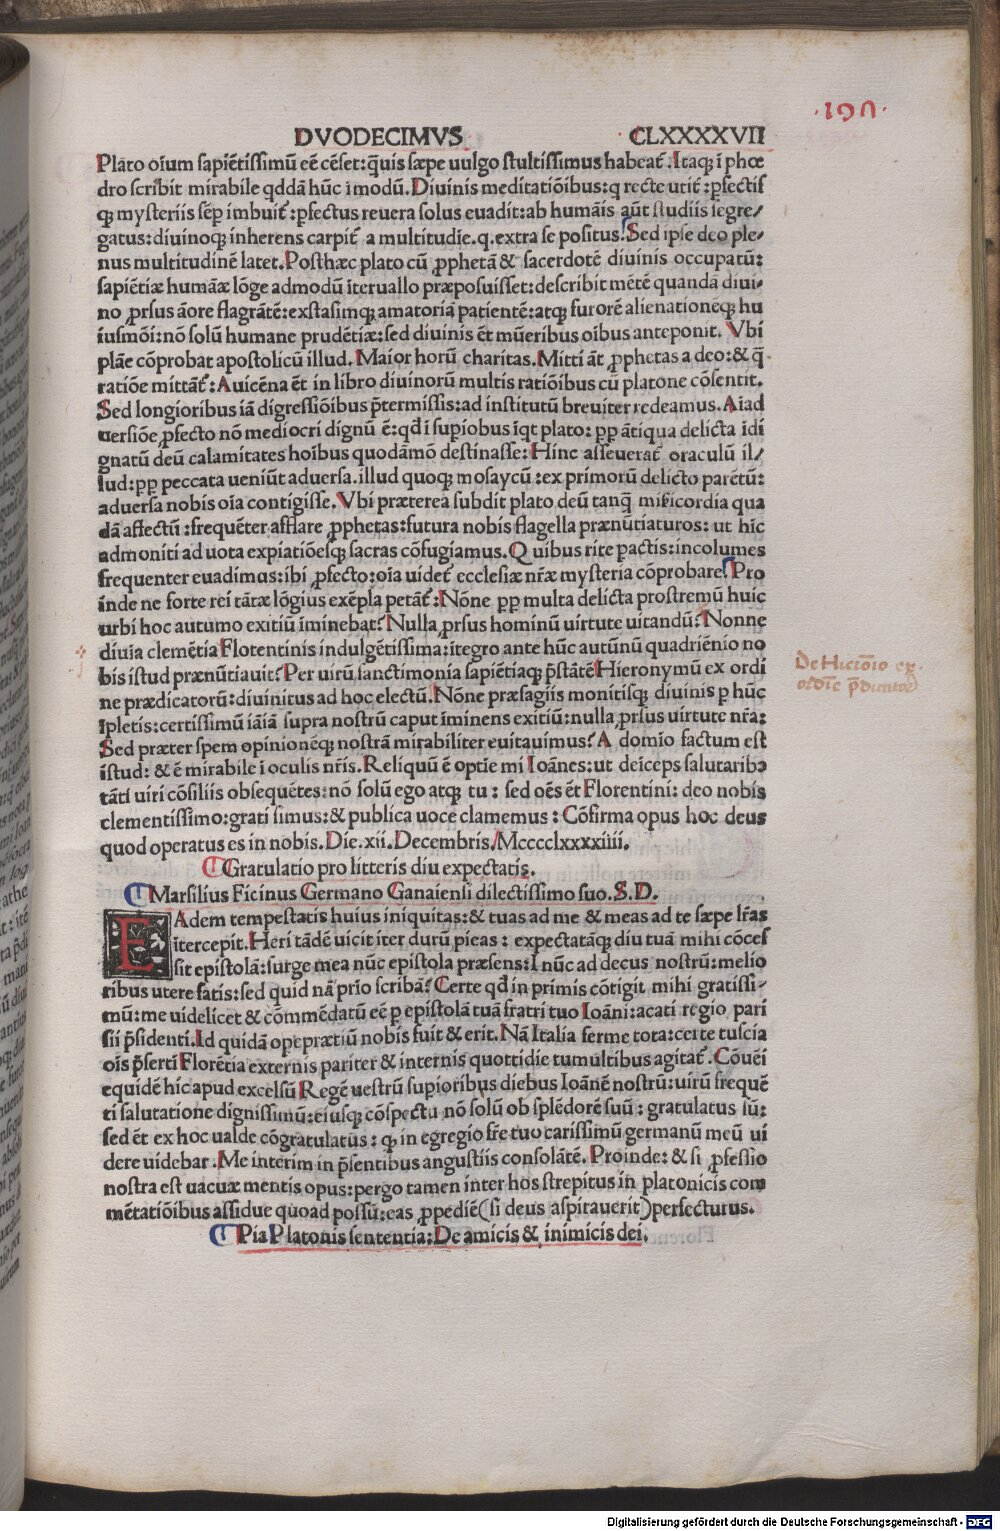 ·190·
DVODECIMVS CLXXXXVII
Plato oīum sapiētissimū eē cēset: q̄uis sæpe uulgo stultissimus habeat᷒. Itaqꝫ ī phœ
dro scribit mirabile qddā hūc īmodū. Diuinis meditatiōibus: q recte utit᷒: ꝑfectis
qꝫ mysteriis sēꝑ imbuit᷒: ꝑfectus reuera solus euadit: ab humāis aūt studiis īegre/
gatus: diuinoqꝫ inherens carpit᷒ a multitudīe. q. extra se positus. Sed ipse deo ple/
nus multitudinē latet. Posthæc plato cū ꝓphetā & sacerdotē diuinis occupatū:
sapiētiæ humāæ lōge admodū īteruallo præposuisset: describit mētē quandā diui/
no ꝓrsus āore flagrātē: exstasimqꝫ amatoriā patientē: atqꝫ furorē alienationēqꝫ hu
iusmōi: nō solū humane prudētiæ: sed diuinis ēt mūeribus oībus anteponit. Vbi
plāe cōprobat apostolicū illud. Maior horū charitas. Mitti āt ꝓphetas a deo: & q̄
ratiōe mittāt᷒: Auicēna ēt in libro diuinorū multis ratiōibus cū platone cōsentit.
Sed longioribus iā digressiōibus p̄termissis: ad institutū breuiter redeamus. Aīad
uersiōe ꝓfecto nō mediocri dignū ē: qd ī supīobus īqt plato: ꝓꝑ ātiqua delicta īdi
gnatū deū calamitates hoībus quodāmō destinasse: Hinc asseuerat᷒ oraculū il/
lud: ꝓꝑ peccata ueniūt aduersa. illud quoqꝫ mosaycū: ex primorū delicto parētū:
aduersa nobis oīa contigisse. Vbi præterea subdit plato deū tanq̄ misericordia qua
dā affectū: frequēter afflare ꝓphetas: futura nobis flagella prænūtiaturos: ut hīc
admoniti ad uota expiatiōesqꝫ sacras cōfugiamus. Quibus rite ꝑactis: incolumes
frequenter euadimus: ibi ꝓfecto: oīa uidet᷒ ecclesiæ nr̄æ mysteria cōprobare. Pro
īnde ne forte rei tātæ lōgius exēpla petāt᷒: Nōne ꝓꝑ multa delicta prostremū huic
urbi hoc autumo exitiū īminebat? Nulla ꝓrsus hominū uirtute uitandū? Nonne
diuīa clemētia Florentinis indulgētissima: ītegro ante hūc autūnū quadriēnio no
bis istud prænūtiauit? Per uirū sanctimonia sapiētiaqꝫ p̄stātē Hieronymū ex ordi
ne prædicatorū: diuinitus ad hoc electū. Nōne præsagiis monitisqꝫ diuinis ꝑ hūc
īpletis: certissimū iāiā supra nostrū caput īminens exitiū: nulla ꝓrsus uirtute nr̄a:
Sed præter spem opinionēqꝫ nostrā mirabiliter euitauimus? A domīo factum est
īstud: & ē mirabile ī oculis nr̄is. Reliquū ē optīe mi Ioānes: ut deīceps salutaribꝰ
tāti uiri cōsiliis obsequētes: nō solū ego atqꝫ tu: sed oēs ēt Florentini: deo nobis
clementissimo: grati simus: & publica uoce clamemus: Cōfirma opus hoc deus
quod operatus es in nobis. Die. xii. Decembris. Mcccclxxxxiiii.
¶ Gratulatio pro litteris diu expectatis.
¶ Marsilius Ficinus Germano Ganaiensi dilectissimo suo. S. D.
EAdem tempestatis huius iniquitas: & tuas ad me & meas ad te sæpe lr̄as
ītercepit. Heri tādē uicit iter durū pieas: expectatāqꝫ diu tuā mihi cōces
sit epistolā: surge mea nūc epistola præsens: I nūc ad decus nostrū: melio
ribus utere fatis: sed quid nā prīo scribā? Certe qd in primis cōtigit mihi gratissi/
mū: me uidelicet & cōmēdatū eē ꝑ epistolā tuā fratri tuo Ioāni: acati regio pari
sii p̄sidenti. Id quidā opeprætiū nobis fuit & erit. Nā Italia ferme tota: certe tuscia
oīs p̄serti Florētia externis pariter & internis quottidie tumultibus agitat᷒. Cōuēi
equidē hic apud excelsū Regē uestrū supīoribus diebus Ioānē nostrū: uirū frequē
ti salutatione dignissimū: eiusqꝫ cōspectu nō solū ob splēdorē suū: gratulatus sū:
sed ēt ex hoc ualde cōgratulatus: qꝫ in egregio fr̄e tuo carissimū germanū meū ui
dere uidebar. Me interim in p̄sentibus angustiis consolātē. Proinde: & si ꝓfessio
nostra est uacuæ mentis opus: pergo tamen inter hos strepitus in platonicis com
mētatiōibus assidue quoad possū: eas ꝓpediē (si deus aspirauerit) perfecturus.
¶ Pia Platonis sententia: De amicis & inimicis dei.
De Hierōīo ex
ordīe p̄dicator
Digitalisierung gefördert durch die Deutsche Forschungsgemeinschaft - DFG